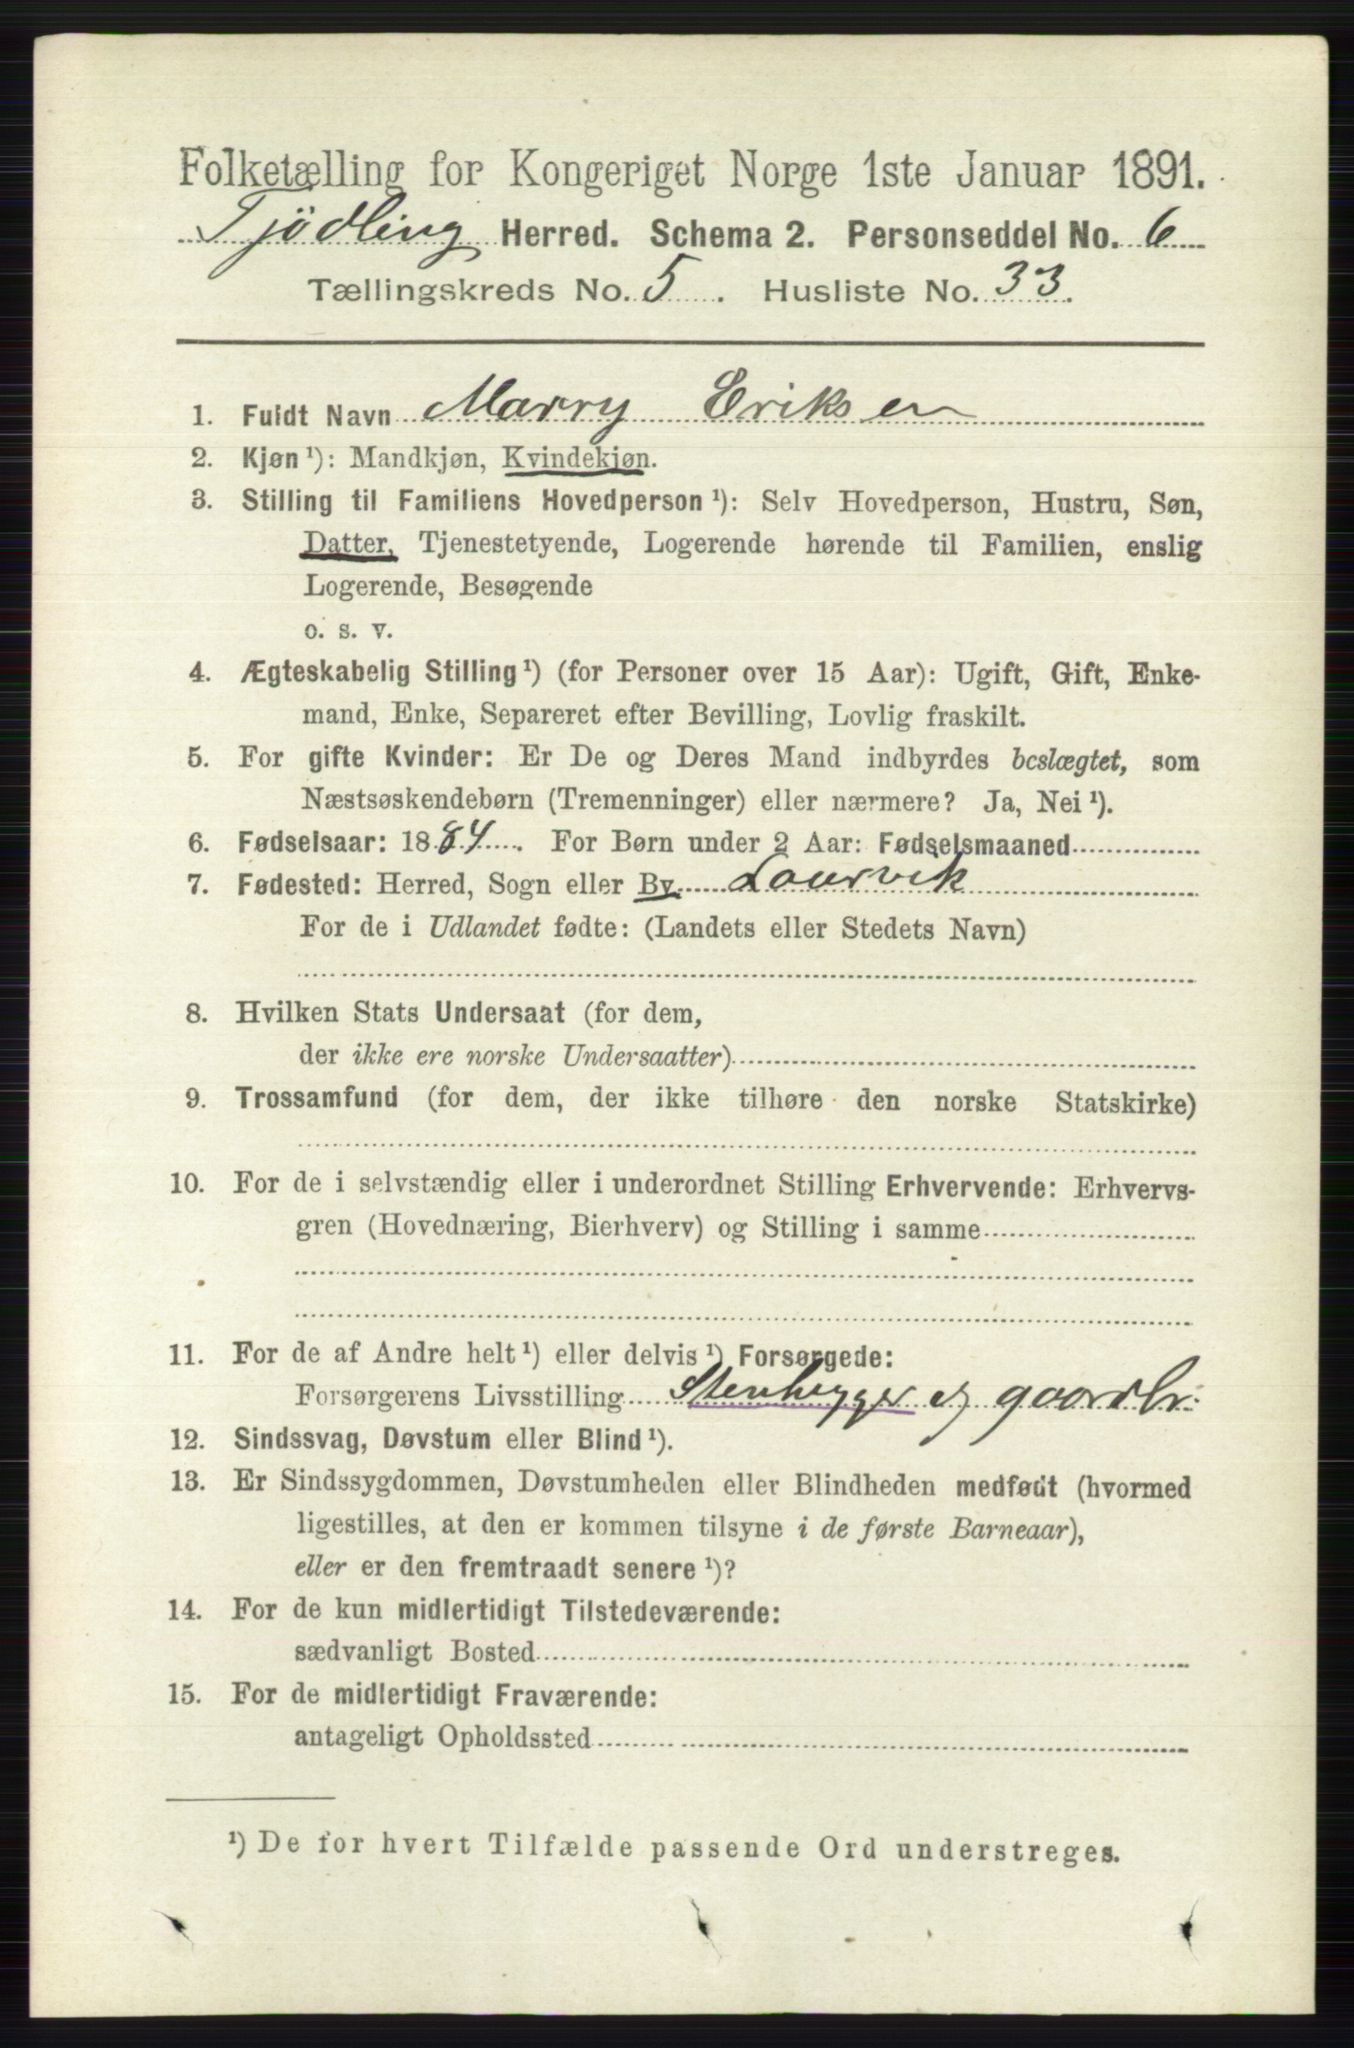 Folketælling for Kongeriget Norge 1ste Januar 1891.
Tjödling Herred. Schema 2. Personseddel No. 6
Tællingskreds No. 5. Husliste No. 33.
1. Fuldt Navn Marry Eriksen
2. Kjøn ¹): Mandkjøn, Kvindekjøn.
3. Stilling til Familiens Hovedperson ¹): Selv Hovedperson, Hustru, Søn,
Datter, Tjenestetyende, Logerende hørende til Familien, enslig
Logerende, Besøgende
o. s. v.
4. Ægteskabelig Stilling ¹) (for Personer over 15 Aar): Ugift, Gift, Enke-
mand, Enke, Separeret efter Bevilling, Lovlig fraskilt.
5. For gifte Kvinder: Er De og Deres Mand indbyrdes beslægtet, som
Næstsøskendebørn (Tremenninger) eller nærmere? Ja, Nei ¹).
6. Fødselsaar: 1884. For Børn under 2 Aar: Fødselsmaaned
7. Fødested: Herred, Sogn eller By Laurvik
For de i Udlandet fødte: (Landets eller Stedets Navn)
8. Hvilken Stats Undersaat (for dem,
der ikke ere norske Undersaatter)
9. Trossamfund (for dem, der ikke tilhøre den norske Statskirke)
10. For de i selvstændig eller i underordnet Stilling Erhvervende: Erhvervs-
gren (Hovednæring, Bierhverv) og Stilling i samme
11. For de af Andre helt ¹) eller delvis ¹) Forsørgede:
Forsørgerens Livsstilling Stenhugger og gaardbr.
12. Sindssvag, Døvstum eller Blind ¹).
13. Er Sindssygdommen, Døvstumheden eller Blindheden medfødt (hvormed
ligestilles, at den er kommen tilsyne i de første Barneaar),
eller er den fremtraadt senere ¹)?
14. For de kun midlertidigt Tilstedeværende:
sædvanligt Bosted
15. For de midlertidigt Fraværende:
antageligt Opholdssted
¹) De for hvert Tilfælde passende Ord understreges.